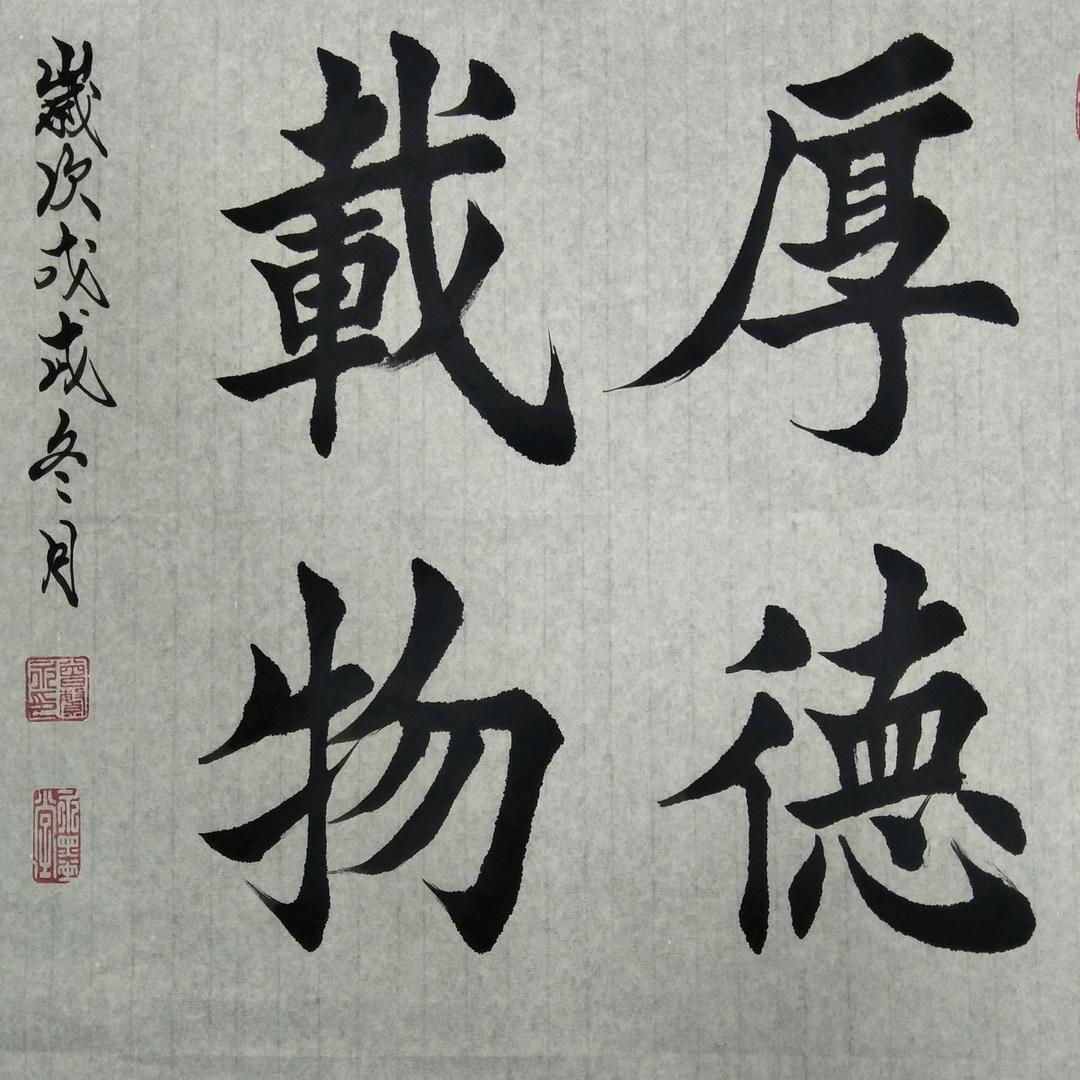 厚德
載物
歲次戊戌冬月